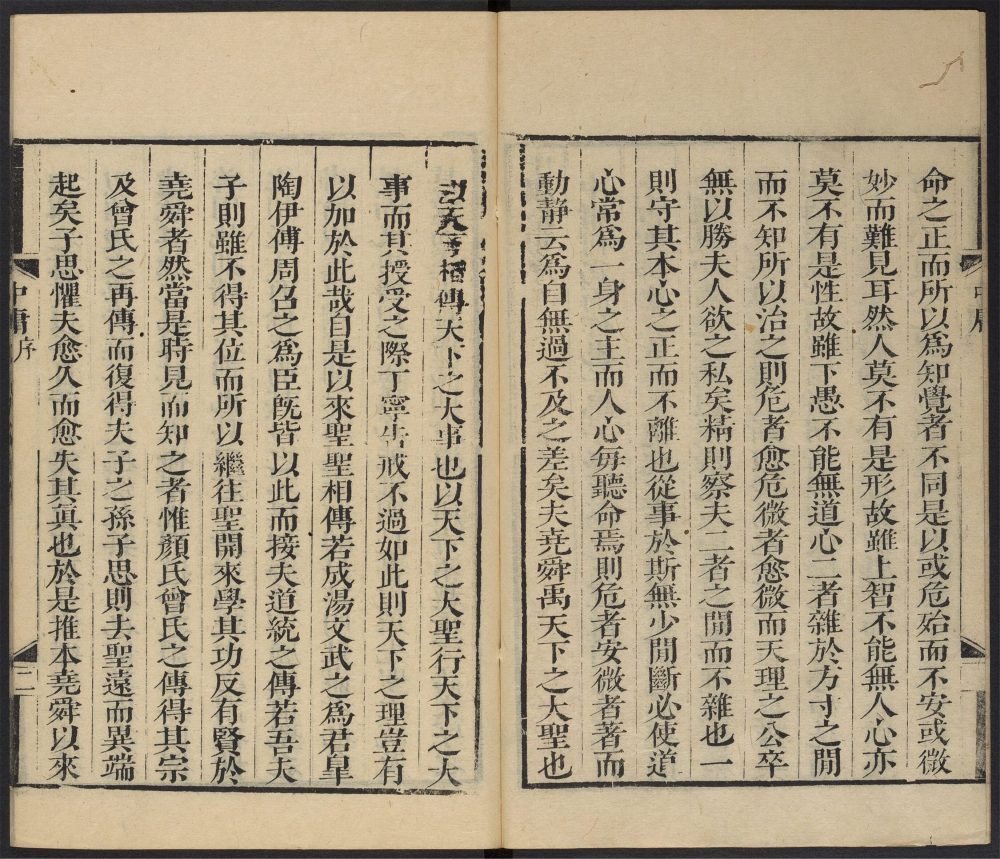 命之正而所以為知覺者不同是以或危殆而不安或微
妙而難見耳然人莫不有是形故雖上智不能無人心亦
莫不有是性故雖下愚不能無道心二者雜於方寸之閒
而不知所以治之則危者愈危微者愈微而天理之公卒
無以勝夫人欲之私矣精則察夫二者之閒而不雜也一
則守其本心之正而不離也從事於斯無少閒斷必使道
心常為一身之主而人心每聽命焉則危者安微者著而
動靜云為自無過不及之差矣夫堯舜禹天下之大聖也
以天下相傳天下之大事也以天下之大聖行天下之大
事而其授受之際丁寧告戒不過如此則天下之理豈有
以加於此哉自是以來聖聖相傳若成湯文武之為君皐
陶伊傅周召之為臣旣皆以此而接夫道統之傳若吾夫
子則雖不得其位而所以繼往聖開來學其功反有賢於
堯舜者然當是時見而知之者惟顏氏曾氏之傳得其宗
及曾氏之再傳而復得夫子之孫子思則去聖遠而異端
起矣子思懼夫愈久而愈失其眞也於是推本堯舜以來
中庸序
二